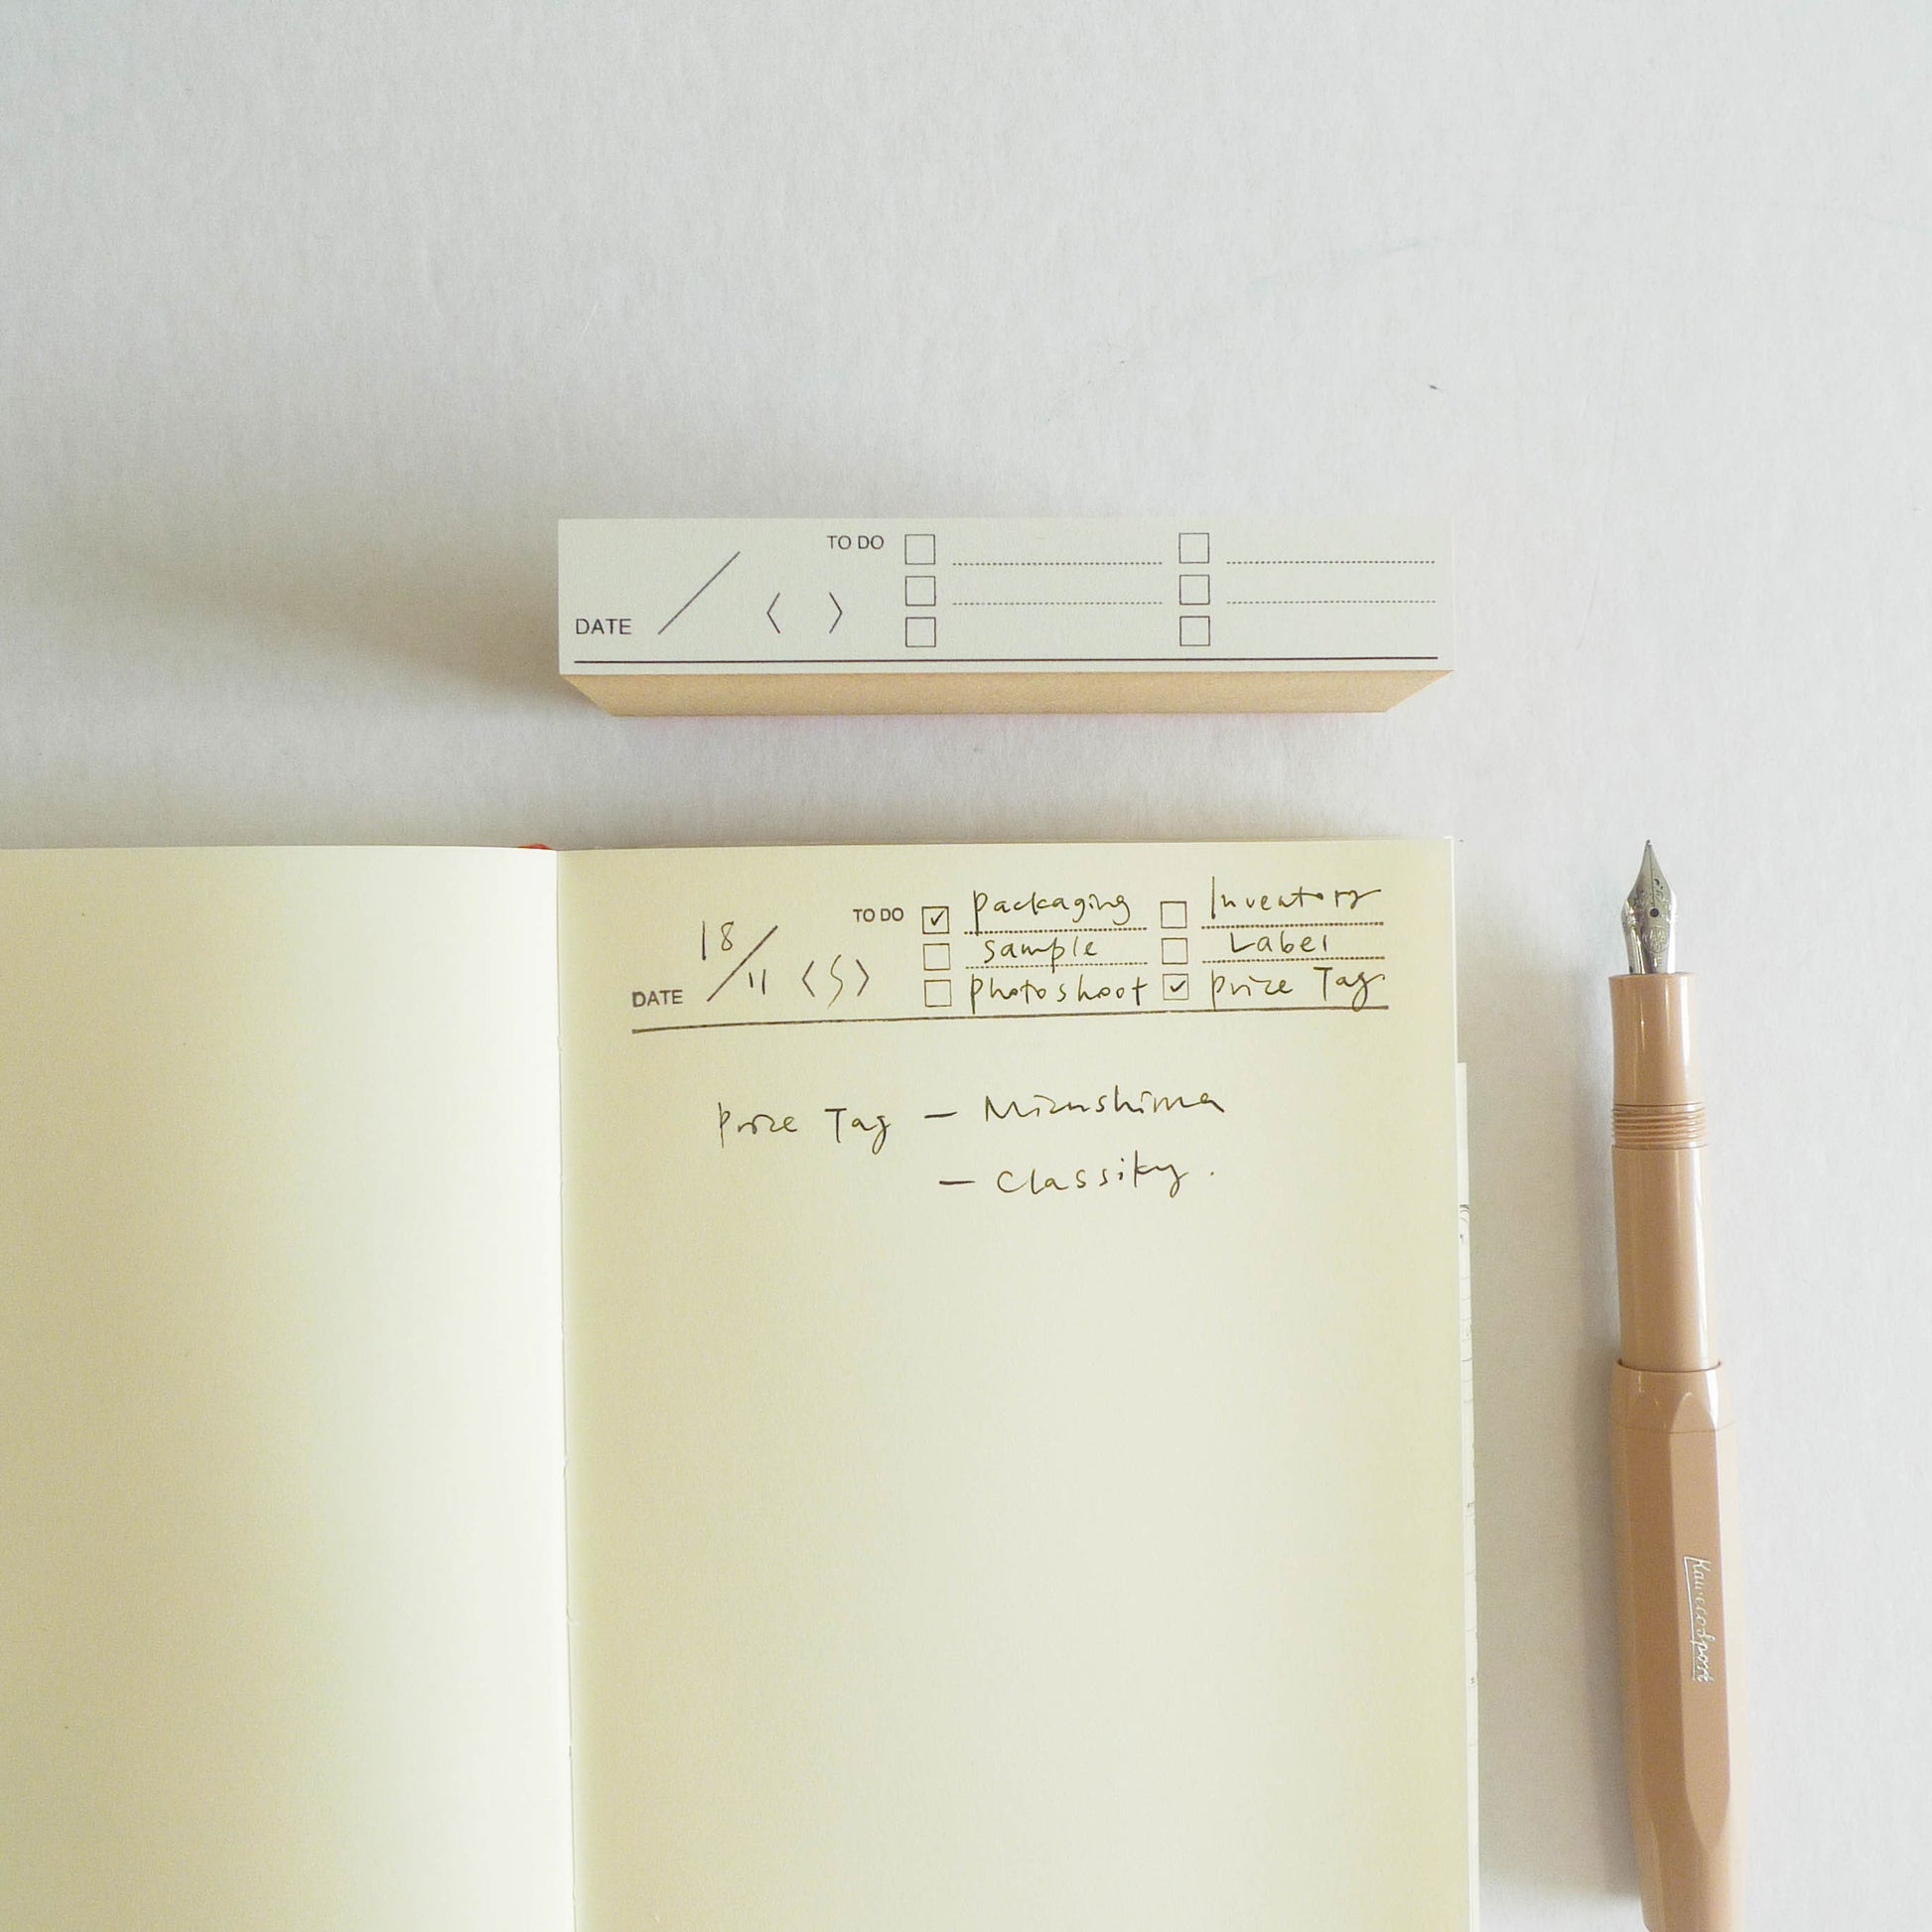 TO DO
DATE / < >
TO DO
packaging Inventory
sample Label
photoshoot Price Tag.
DATE 18/11 <S>
Price Tag — Mizushima
— Classiky.
Kaweco Sport